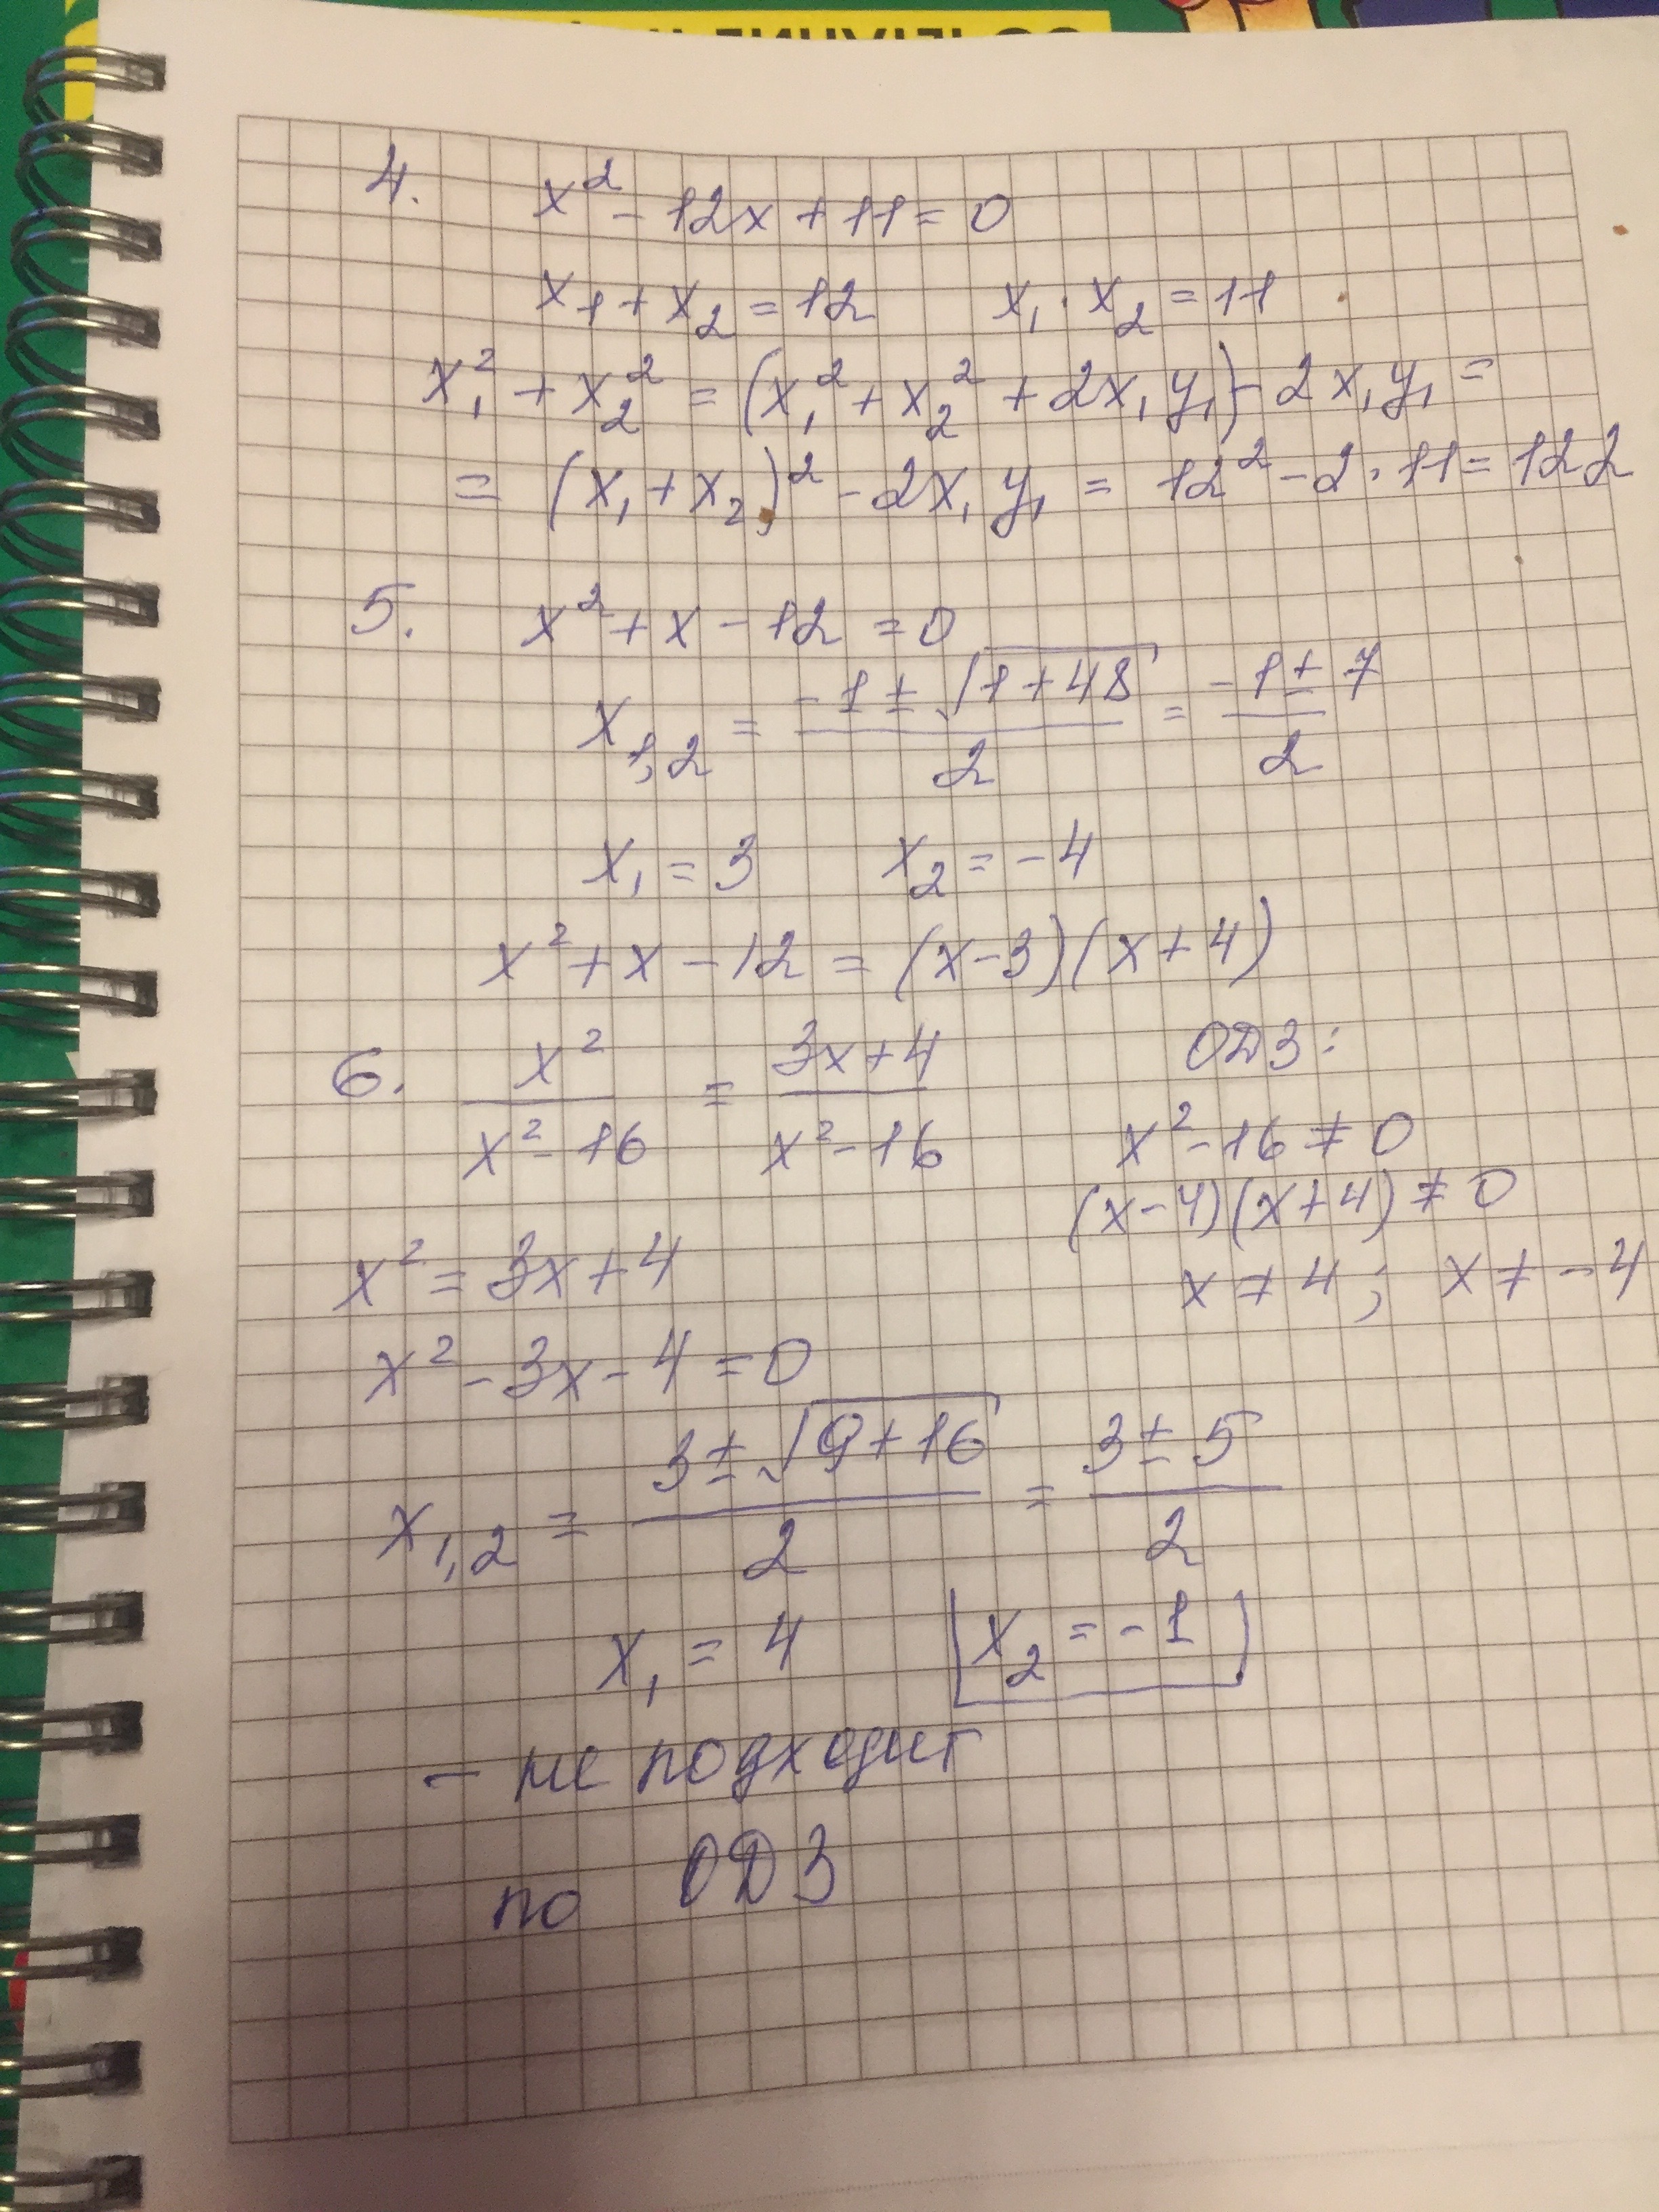 4. x² - 12x + 11 = 0
x₁ + x₂ = 12 x₁ · x₂ = 11
x₁² + x₂² = (x₁² + x₂² + 2x₁y₁) - 2x₁y₁ =
= (x₁ + x₂)² - 2x₁y₁ = 12² - 2 · 11 = 122
5. x² + x - 12 = 0
x₁,₂ = (-1 ± √(1 + 48))/2 = (-1 ± 7)/2
x₁ = 3 x₂ = -4
x² + x - 12 = (x - 3)(x + 4)
6. x²/(x² - 16) = (3x + 4)/(x² - 16) ОДЗ:
x² - 16 ≠ 0
(x - 4)(x + 4) ≠ 0
x² = 3x + 4 x ≠ 4; x ≠ -4
x² - 3x - 4 = 0
x₁,₂ = (3 ± √(9 + 16))/2 = (3 ± 5)/2
x₁ = 4 x₂ = -1
- не подходит
по ОДЗ